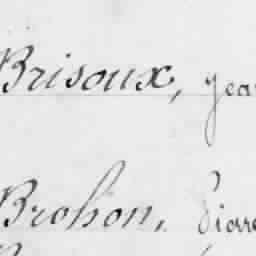 Brisoux, Jean
Brohon, Pierre